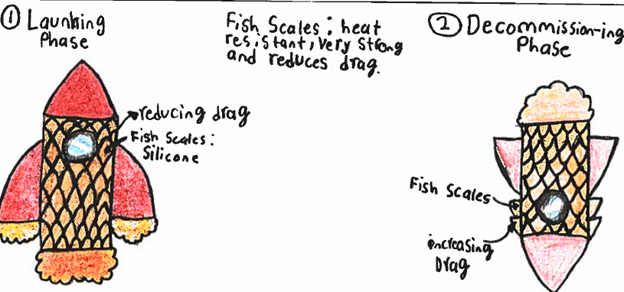 ① Launhing
Phase
Fish Scales: heat
resistant, very strong
and reduces drag.
② Decommission-ing
Phase
reducing drag
Fish Scales:
Silicone
Fish Scales
increasing
Drag